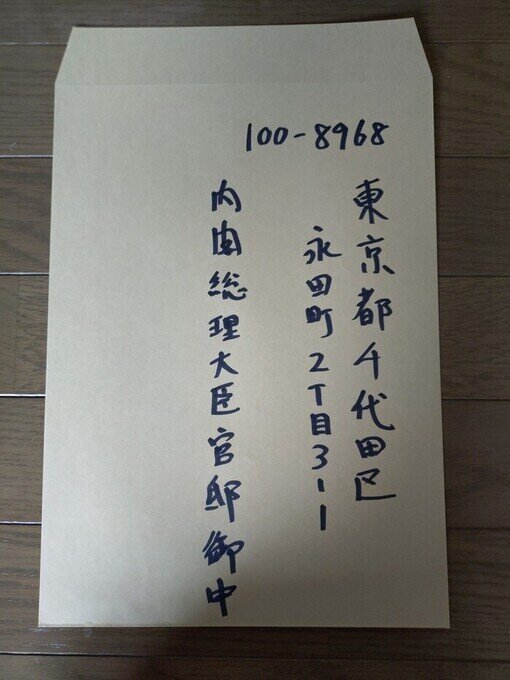 100-8968
東京都千代田区
永田町2丁目3-1
内閣総理大臣官邸御中